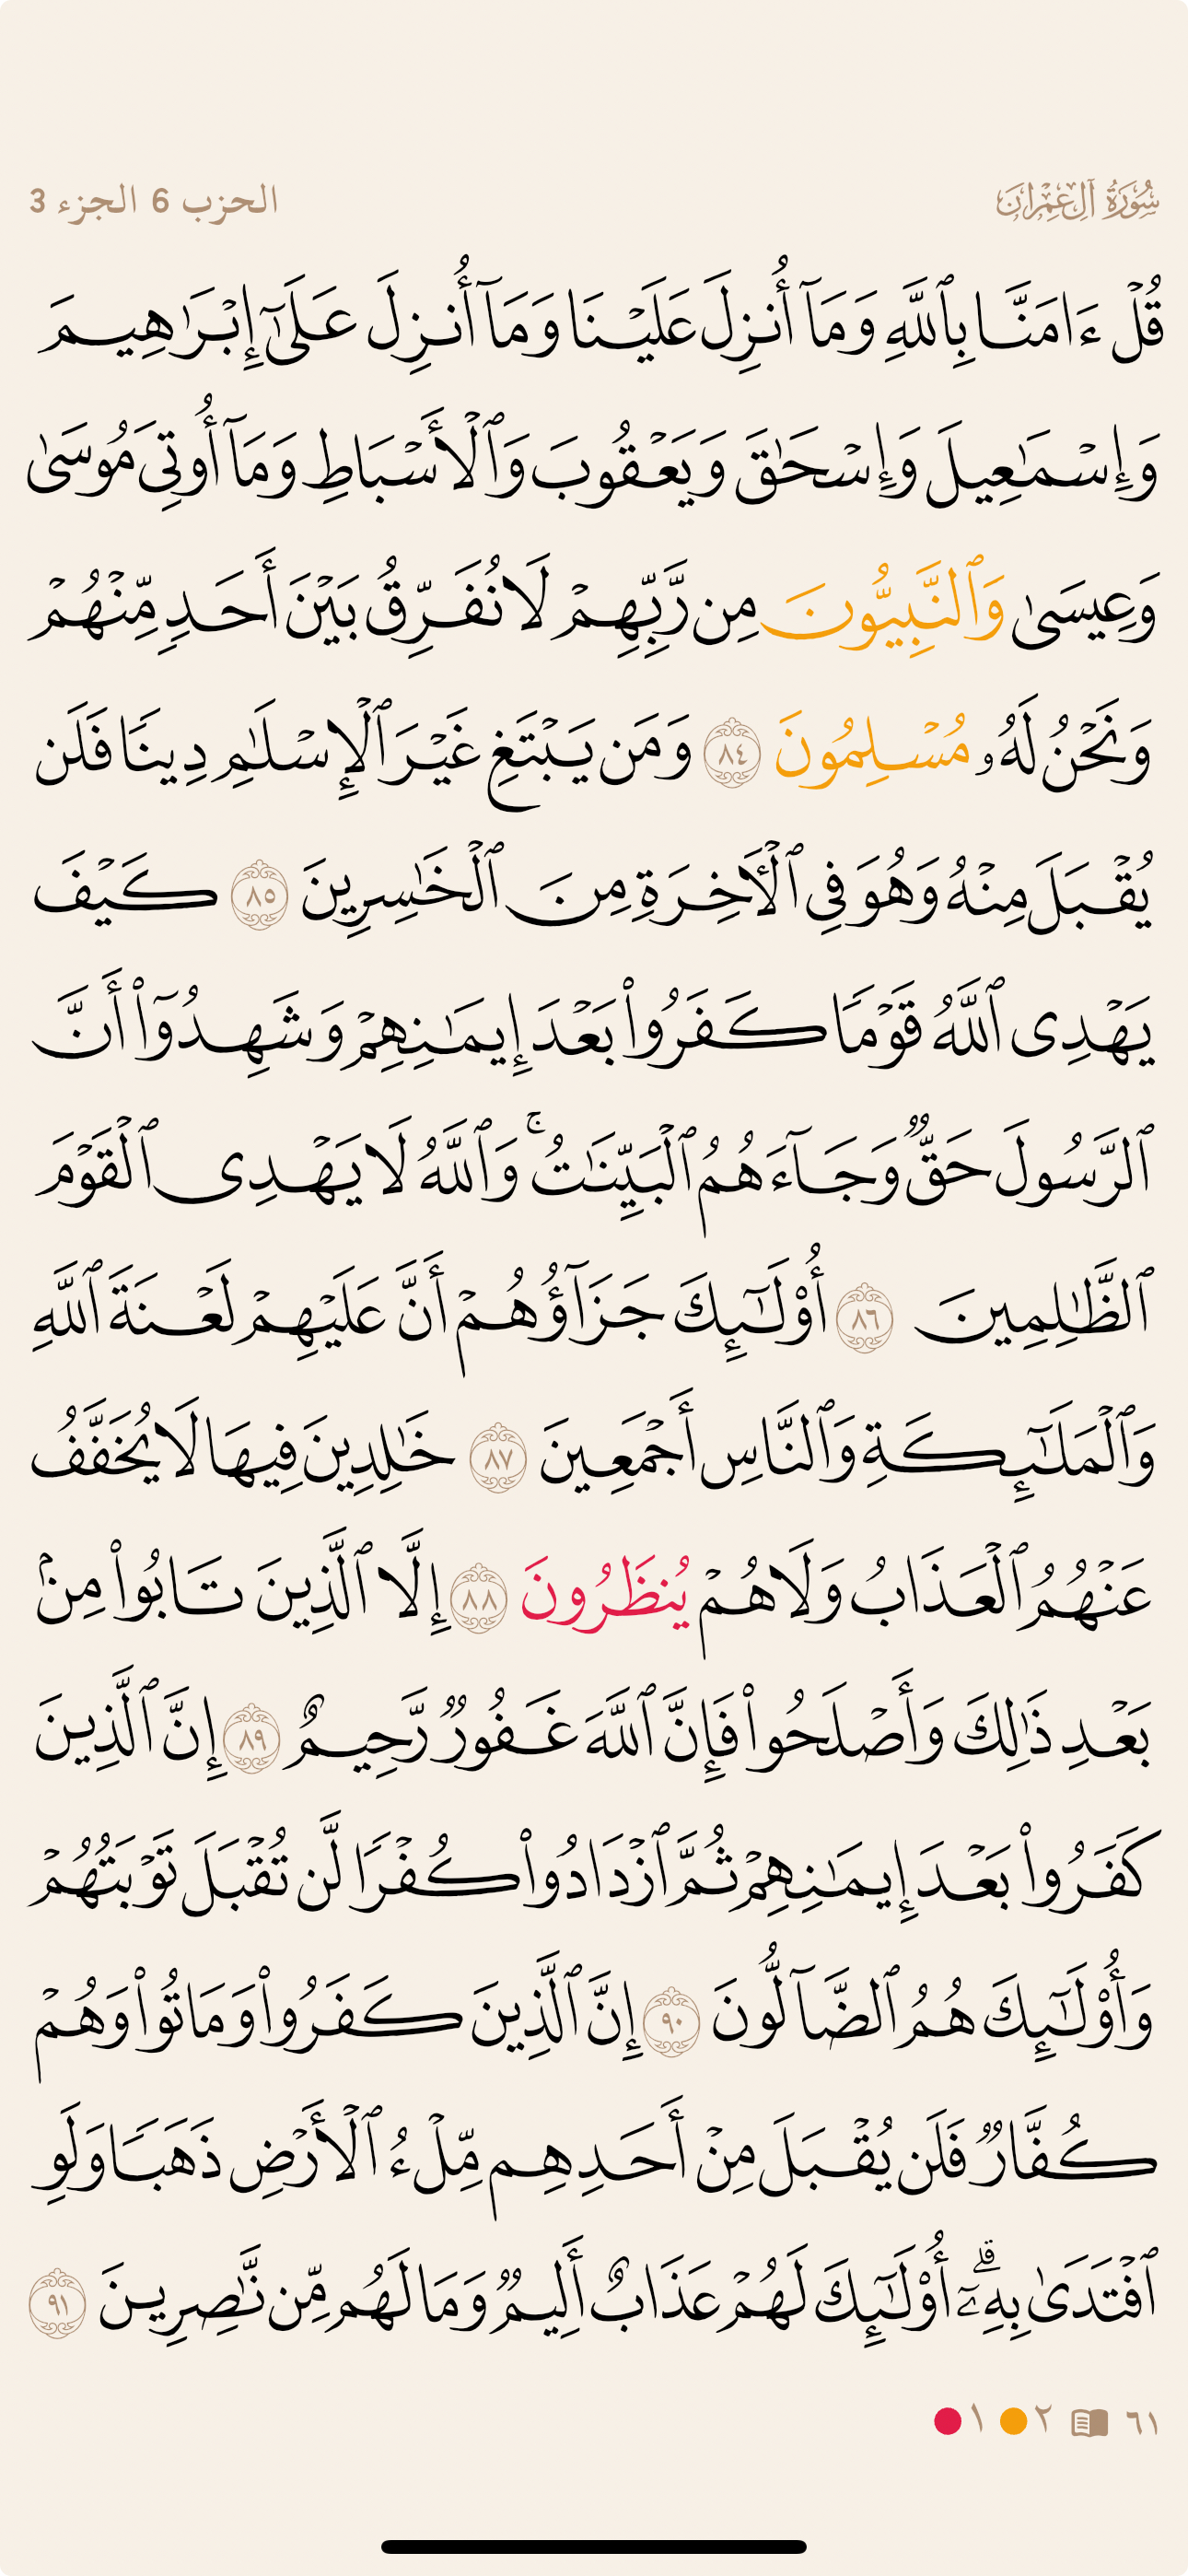 سُورَةُ آلِ عِمْرَانَ
الحزب 6 الجزء 3
قُلْ ءَامَنَّا بِٱللَّهِ وَمَآ أُنزِلَ عَلَيْنَا وَمَآ أُنزِلَ عَلَىٰٓ إِبْرَٰهِيمَ
وَإِسْمَٰعِيلَ وَإِسْحَٰقَ وَيَعْقُوبَ وَٱلْأَسْبَاطِ وَمَآ أُوتِىَ مُوسَىٰ
وَعِيسَىٰ وَٱلنَّبِيُّونَ مِن رَّبِّهِمْ لَا نُفَرِّقُ بَيْنَ أَحَدٍ مِّنْهُمْ
وَنَحْنُ لَهُۥ مُسْلِمُونَ ٨٤ وَمَن يَبْتَغِ غَيْرَ ٱلْإِسْلَٰمِ دِينًا فَلَن
يُقْبَلَ مِنْهُ وَهُوَ فِى ٱلْأَخِرَةِ مِنَ ٱلْخَٰسِرِينَ ٨٥ كَيْفَ
يَهْدِى ٱللَّهُ قَوْمًا كَفَرُوا۟ بَعْدَ إِيمَٰنِهِمْ وَشَهِدُوٓا۟ أَنَّ
ٱلرَّسُولَ حَقٌّ وَجَآءَهُمُ ٱلْبَيِّنَٰتُ ۚ وَٱللَّهُ لَا يَهْدِى ٱلْقَوْمَ
ٱلظَّٰلِمِينَ ٨٦ أُو۟لَٰٓئِكَ جَزَآؤُهُمْ أَنَّ عَلَيْهِمْ لَعْنَةَ ٱللَّهِ
وَٱلْمَلَٰٓئِكَةِ وَٱلنَّاسِ أَجْمَعِينَ ٨٧ خَٰلِدِينَ فِيهَا لَا يُخَفَّفُ
عَنْهُمُ ٱلْعَذَابُ وَلَا هُمْ يُنظَرُونَ ٨٨ إِلَّا ٱلَّذِينَ تَابُوا۟ مِنۢ
بَعْدِ ذَٰلِكَ وَأَصْلَحُوا۟ فَإِنَّ ٱللَّهَ غَفُورٌ رَّحِيمٌ ٨٩ إِنَّ ٱلَّذِينَ
كَفَرُوا۟ بَعْدَ إِيمَٰنِهِمْ ثُمَّ ٱزْدَادُوا۟ كُفْرًا لَّن تُقْبَلَ تَوْبَتُهُمْ
وَأُو۟لَٰٓئِكَ هُمُ ٱلضَّآلُّونَ ٩٠ إِنَّ ٱلَّذِينَ كَفَرُوا۟ وَمَاتُوا۟ وَهُمْ
كُفَّارٌ فَلَن يُقْبَلَ مِنْ أَحَدِهِم مِّلْءُ ٱلْأَرْضِ ذَهَبًا وَلَوِ
ٱفْتَدَىٰ بِهِۦٓ ۗ أُو۟لَٰٓئِكَ لَهُمْ عَذَابٌ أَلِيمٌ وَمَا لَهُم مِّن نَّٰصِرِينَ ٩١
٦١ ٢ ١